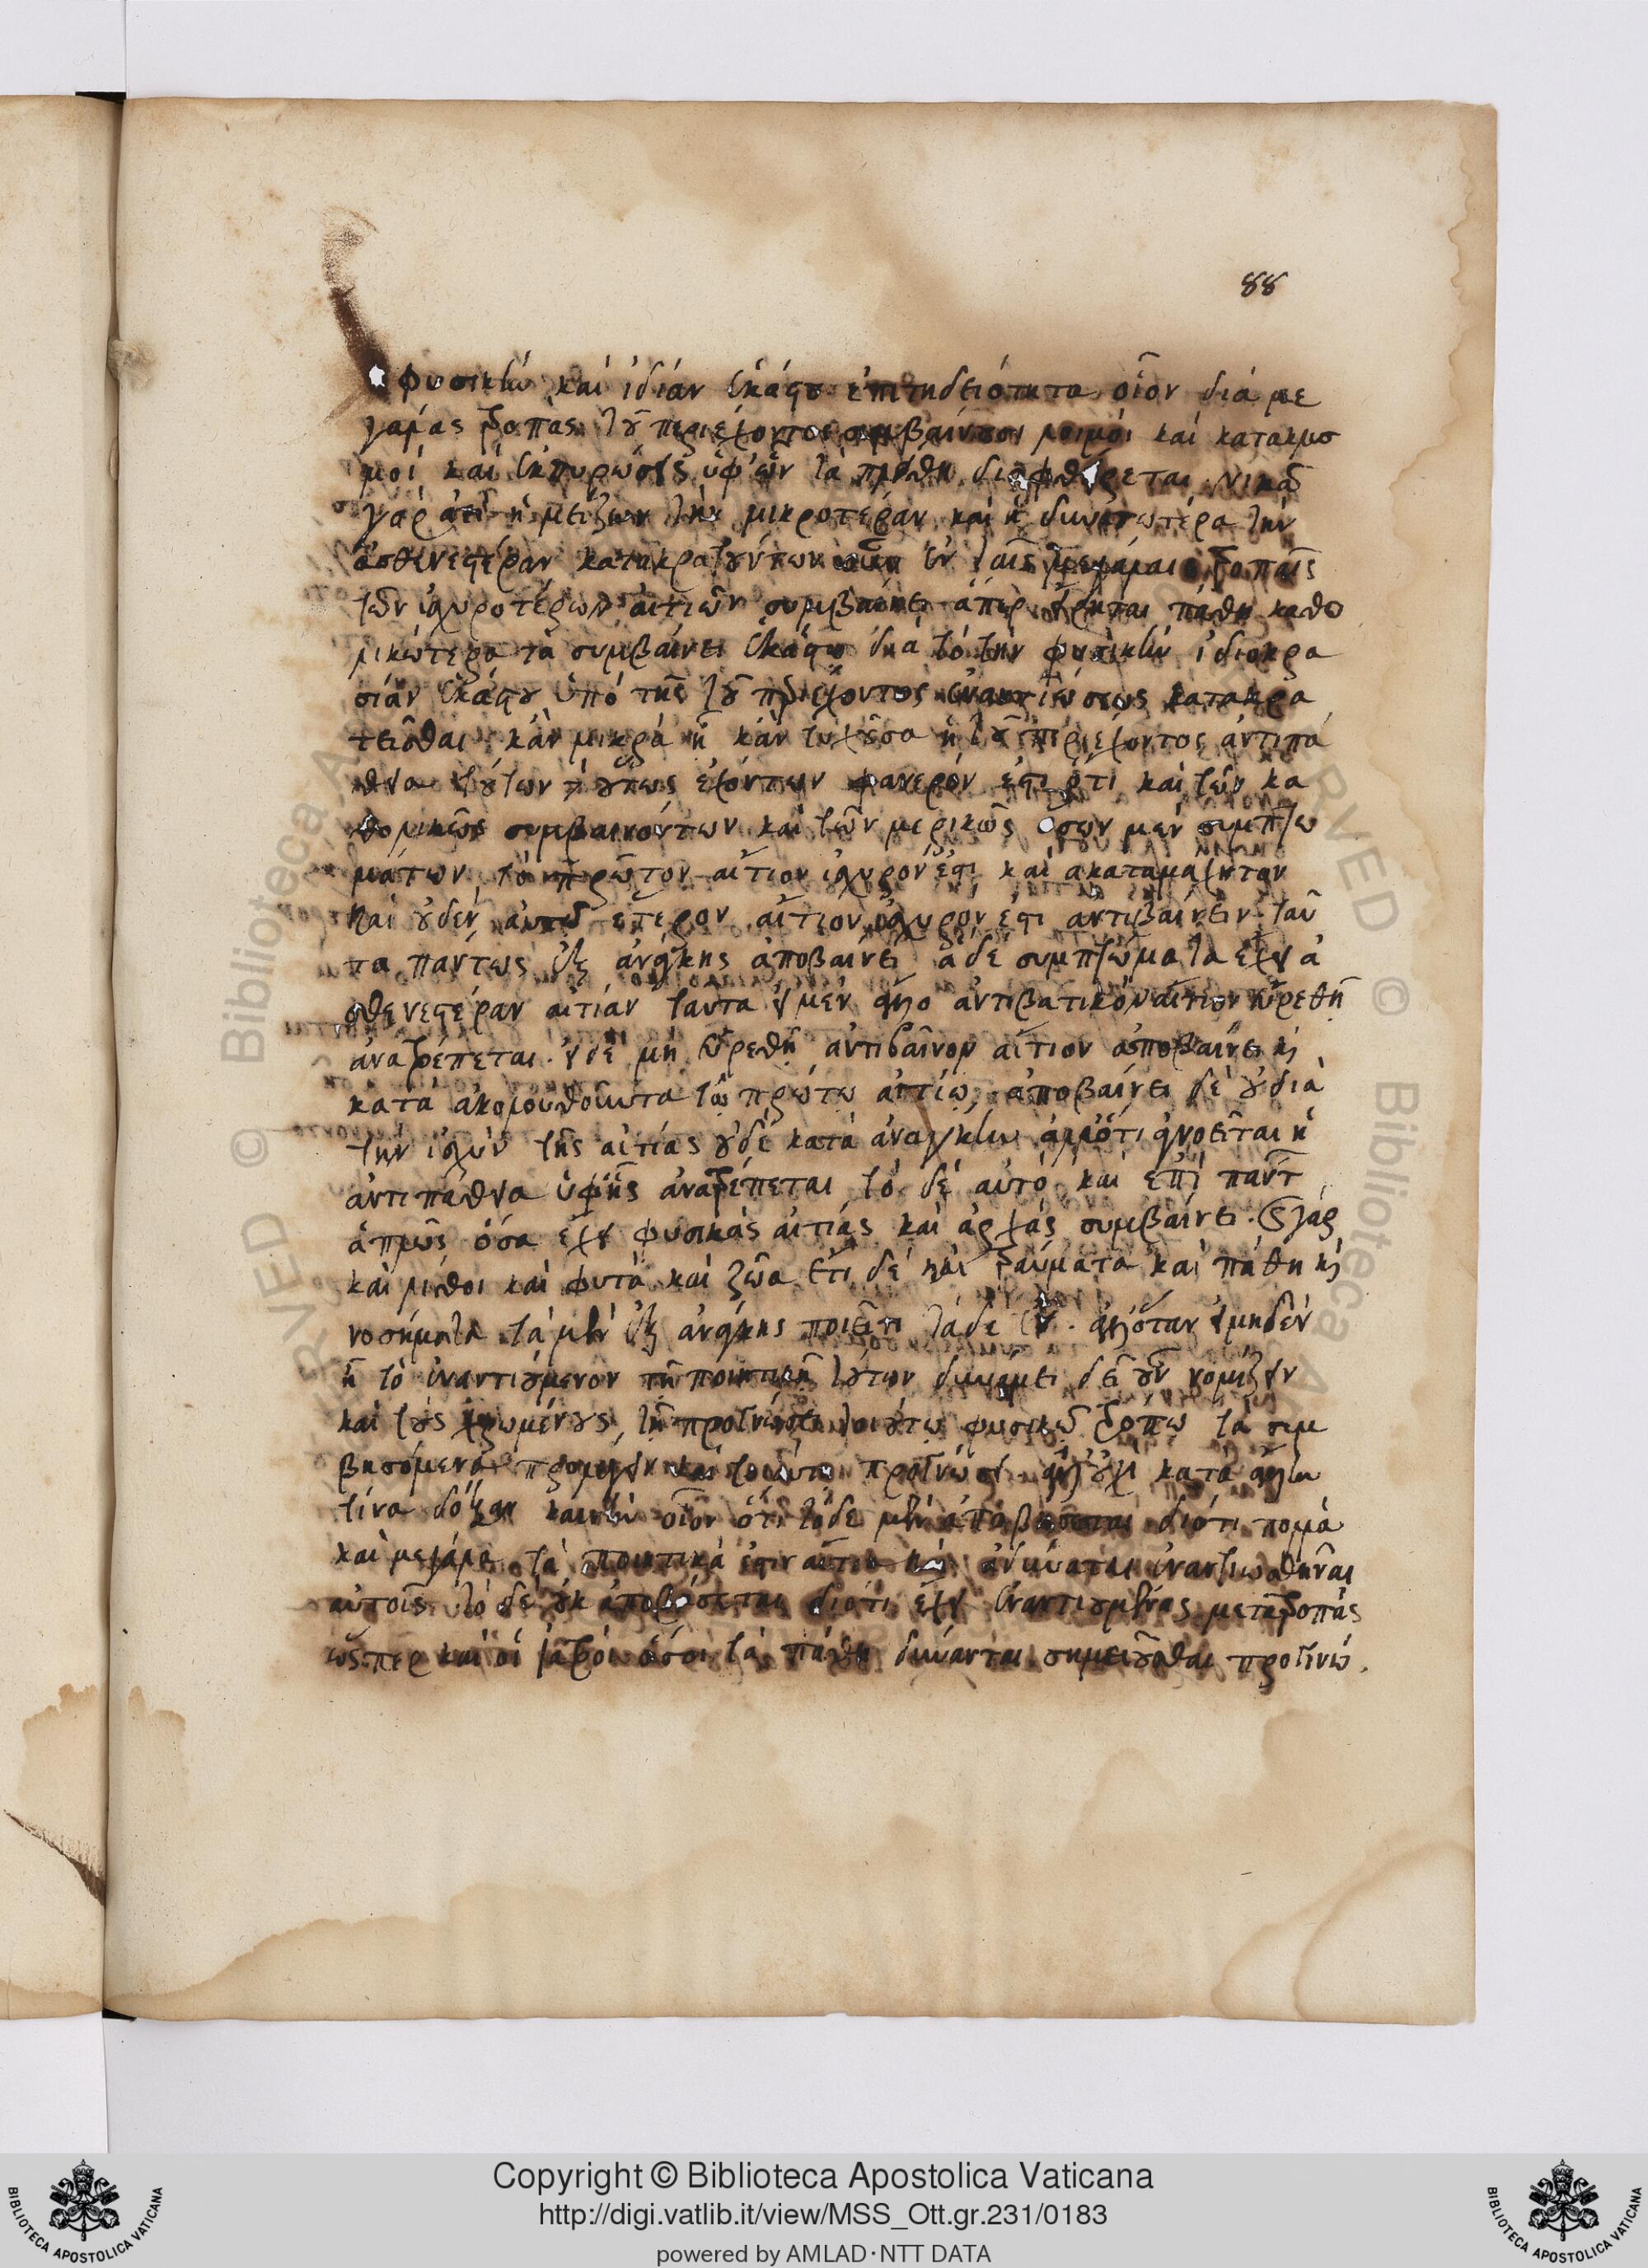 88
φυσικὴν καὶ ἰδίαν ἑκάστου ἐπιτηδειότητα οἷον διὰ με
γάλας ῥοπὰς τοῦ περιέχοντος συμβαίνουσι λοιμοὶ καὶ κατακλυσ
μοὶ καὶ ἐκπυρώσεις ὑφ' ὧν τὰ πλήθη διαφθείρεται νικᾶ
γὰρ ἀεὶ ἡ μείζων τὴν μικροτέραν καὶ ἡ δυνατωτέρα τὴν
ἀσθενεστέραν κατακρατούντων ἐν ταῖς μεγάλαις ῥοπαῖς
τῶν ἰσχυροτέρων αἰτιῶν συμβαίνει ἅπερ εἴρηται πάθη καθο
λικώτερα τὰ συμβαίνει ἑκάστῳ διὰ τὸ τὴν φυσικὴν ἰδιοκρα
σίαν ἑκάστου ὑπὸ τῆς τοῦ περιέχοντος ἐναντιώσεως κατακρα
τεῖσθαι κἂν μικρὰ ἢ κἂν τυχοῦσα ἡ τοῦ περιέχοντος ἀντιπά
θεια τούτων οὕτως ἐχόντων φανερόν ἐστι ὅτι καὶ τῶν κα
θολικῶς συμβαινόντων καὶ τῶν μερικῶς ὅσων μὲν συμπτω
μάτων τὸ πρῶτον αἴτιον ἰσχυρόν ἐστι καὶ ἀκαταμάχητον
καὶ οὐδὲν αὐτοῦ ἕτερον αἴτιον ἰσχυρόν ἐστι ἀντιβαίνειν ταῦ
τα πάντως ἐξ ἀνάγκης ἀποβαίνει ἃ δὲ συμπτώματα ἔχει ἀ
σθενεστέραν αἰτίαν ταῦτα εἰ μὲν ἄλλο ἀντιβατικὸν αἴτιον εὑρεθῇ
ἀνατρέπεται εἰ δὲ μὴ εὑρεθῇ ἀντιβαῖνον αἴτιον ἀποβαίνει καὶ
κατὰ ἀκολουθοῦντα τῷ πρώτῳ αἰτίῳ ἀποβαίνει δὲ οὐ διὰ
τὴν ἰσχὺν τῆς αἰτίας οὐδὲ κατὰ ἀναγκὴν ἀλλ' ὅτι ἀγνοεῖται ἡ
ἀντιπάθεια ὑφ' ἧς ἀνατρέπεται τὸ δὲ αὐτὸ καὶ ἐπὶ πάντ
ἁπλῶς ὅσα ἔχει φυσικὰς αἰτίας καὶ ἀρχὰς συμβαίνει. καὶ γὰρ
καὶ λίθοι καὶ φυτὰ καὶ ζῶα ἔτι δὲ καὶ τραύματα καὶ πάθη καὶ
νοσήματα τὰ μὲν ἐξ ἀνάγκης ποιεῖν τι τὰ δὲ οὔ. ἀλλ' ὅταν εἰ μηδὲν
ᾖ τὸ ἐναντιούμενον τῇ ποιητικῇ τούτων δυνάμει δεῖ οὖν νομίζειν
καὶ τοὺς χρωμένους τῇ προγνώσει τοιούτῳ φυσικῷ τρόπῳ τὰ συμ
βησόμενα προλέγειν καὶ τοιαύτῃ προγνώσει ἀλλ' οὐχὶ κατὰ ἄλλην
τινα δόξαν καινὴν οἷον ὅτι τόδε μὲν ἀποβήσεται διότι πολλὰ
καὶ μεγάλα τὰ ποιητικά ἐστιν αἴτια καὶ ἀδύναται ἐναντιωθῆναι
αὐτοῖς τὸ δὲ οὐκ ἀποβήσεται διότι ἔχει ἐναντιουμένας μετατροπὰς
ὥσπερ καὶ οἱ ἰατροὶ ὅσοι τὰ πάθη δύνανται σημειοῦσθαι προγινώ
Copyright © Biblioteca Apostolica Vaticana
http://digi.vatlib.it/view/MSS_Ott.gr.231/0183
powered by AMLAD·NTT DATA
BIBLIOTECA APOSTOLICA VATICANA
BIBLIOTECA APOSTOLICA VATICANA